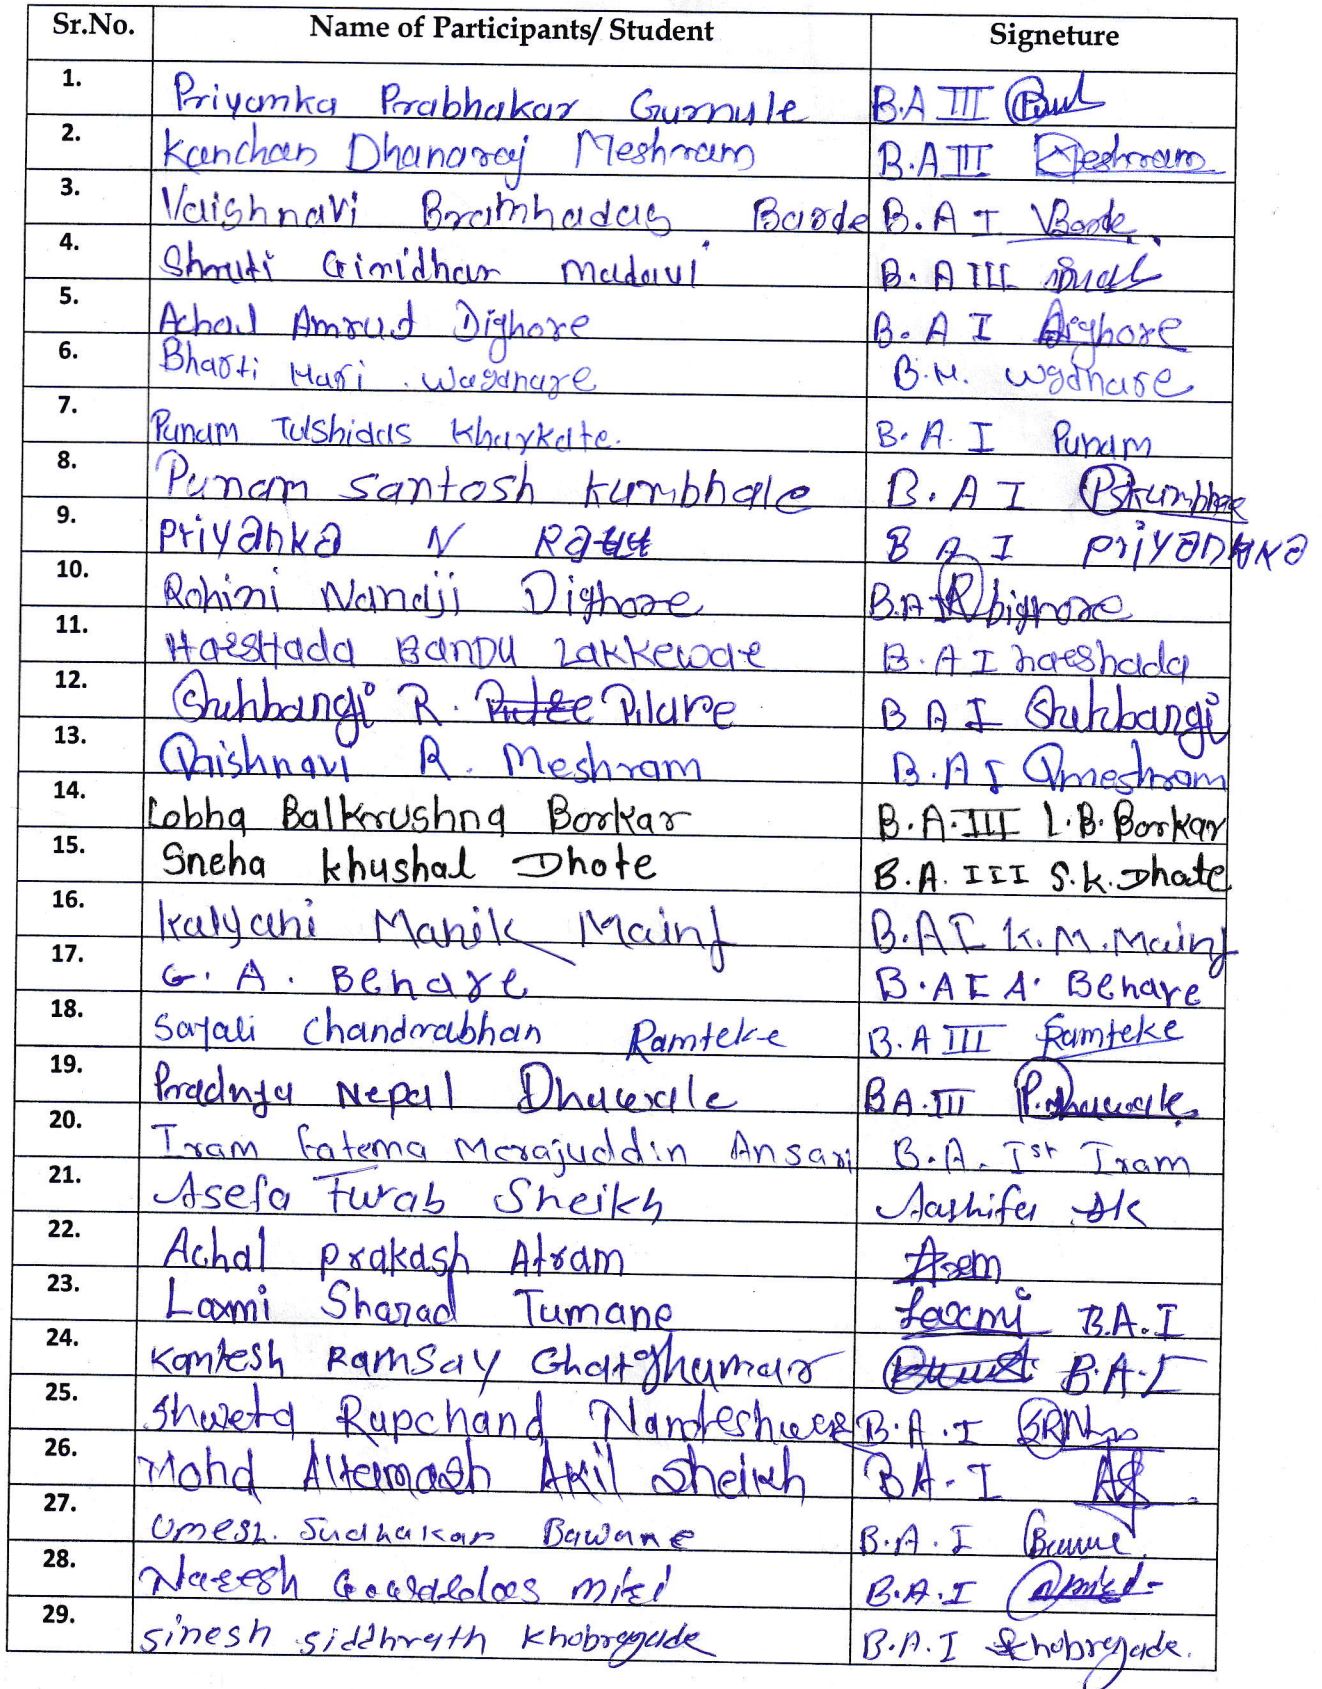 Sr.No. Name of Participants/ Student Signeture
1. Priyanka Prabhakar Gurnule B.A III
2. Kanchan Dhanaraj Meshram B.A III Meshram
3. Vaishnavi Bramhadas Barde B.A I VBarde
4. Shruti Giridhar Madavi B. A III
5. Achal Amrud Dighore B. A I Dighore
6. Bharti Hari . Wagdhare B.H. Wgdhare
7. Punam Tulshidas Kharkate. B. A. I Punam
8. Punam Santosh Kumbhale B. A I PSKumbhare
9. Priyanka N Raut B A I Priyanka
10. Rohini Nanaji Dighore B.A I R Dighore
11. Harshada Bandu Zakkewar B. A I harshada
12. Shuhbangi R. Pilare B A I Shuhbangi
13. Vaishnavi R. Meshram B.A I Vmeshram
14. Lobha Balkrushna Borkar B.A.III L.B. Borkar
15. Sneha Khushal Dhote B.A. III S.K. Dhote
16. Kalyani Manik Maind B.A I K.M.Maind
17. G. A. Behare B.A I A. Behare
18. Sayali Chandrabhan Ramteke B.A III Ramteke
19. Pradnya Nepal Dhawale BA.III P.Dhawale
20. Iram Fatema Merajuddin Ansari B.A. Ist Iram
21. Asefa Turab Sheikh Aashifa Sk
22. Achal Prakash Atram
23. Laxmi Sharad Tumane Laxmi B.A.I
24. Kamlesh Ramsay Ghatghumar B.A.I
25. Shweta Rupchand Nandeshwar B.A.I
26. Mohd Altamash Akil Sheikh BA-I
27. Umesh. Sudhakar Bawane B.A.I
28. Naresh B.A.I
29. Sinesh Siddhrath Khobragade B.A.I Skhobragade.